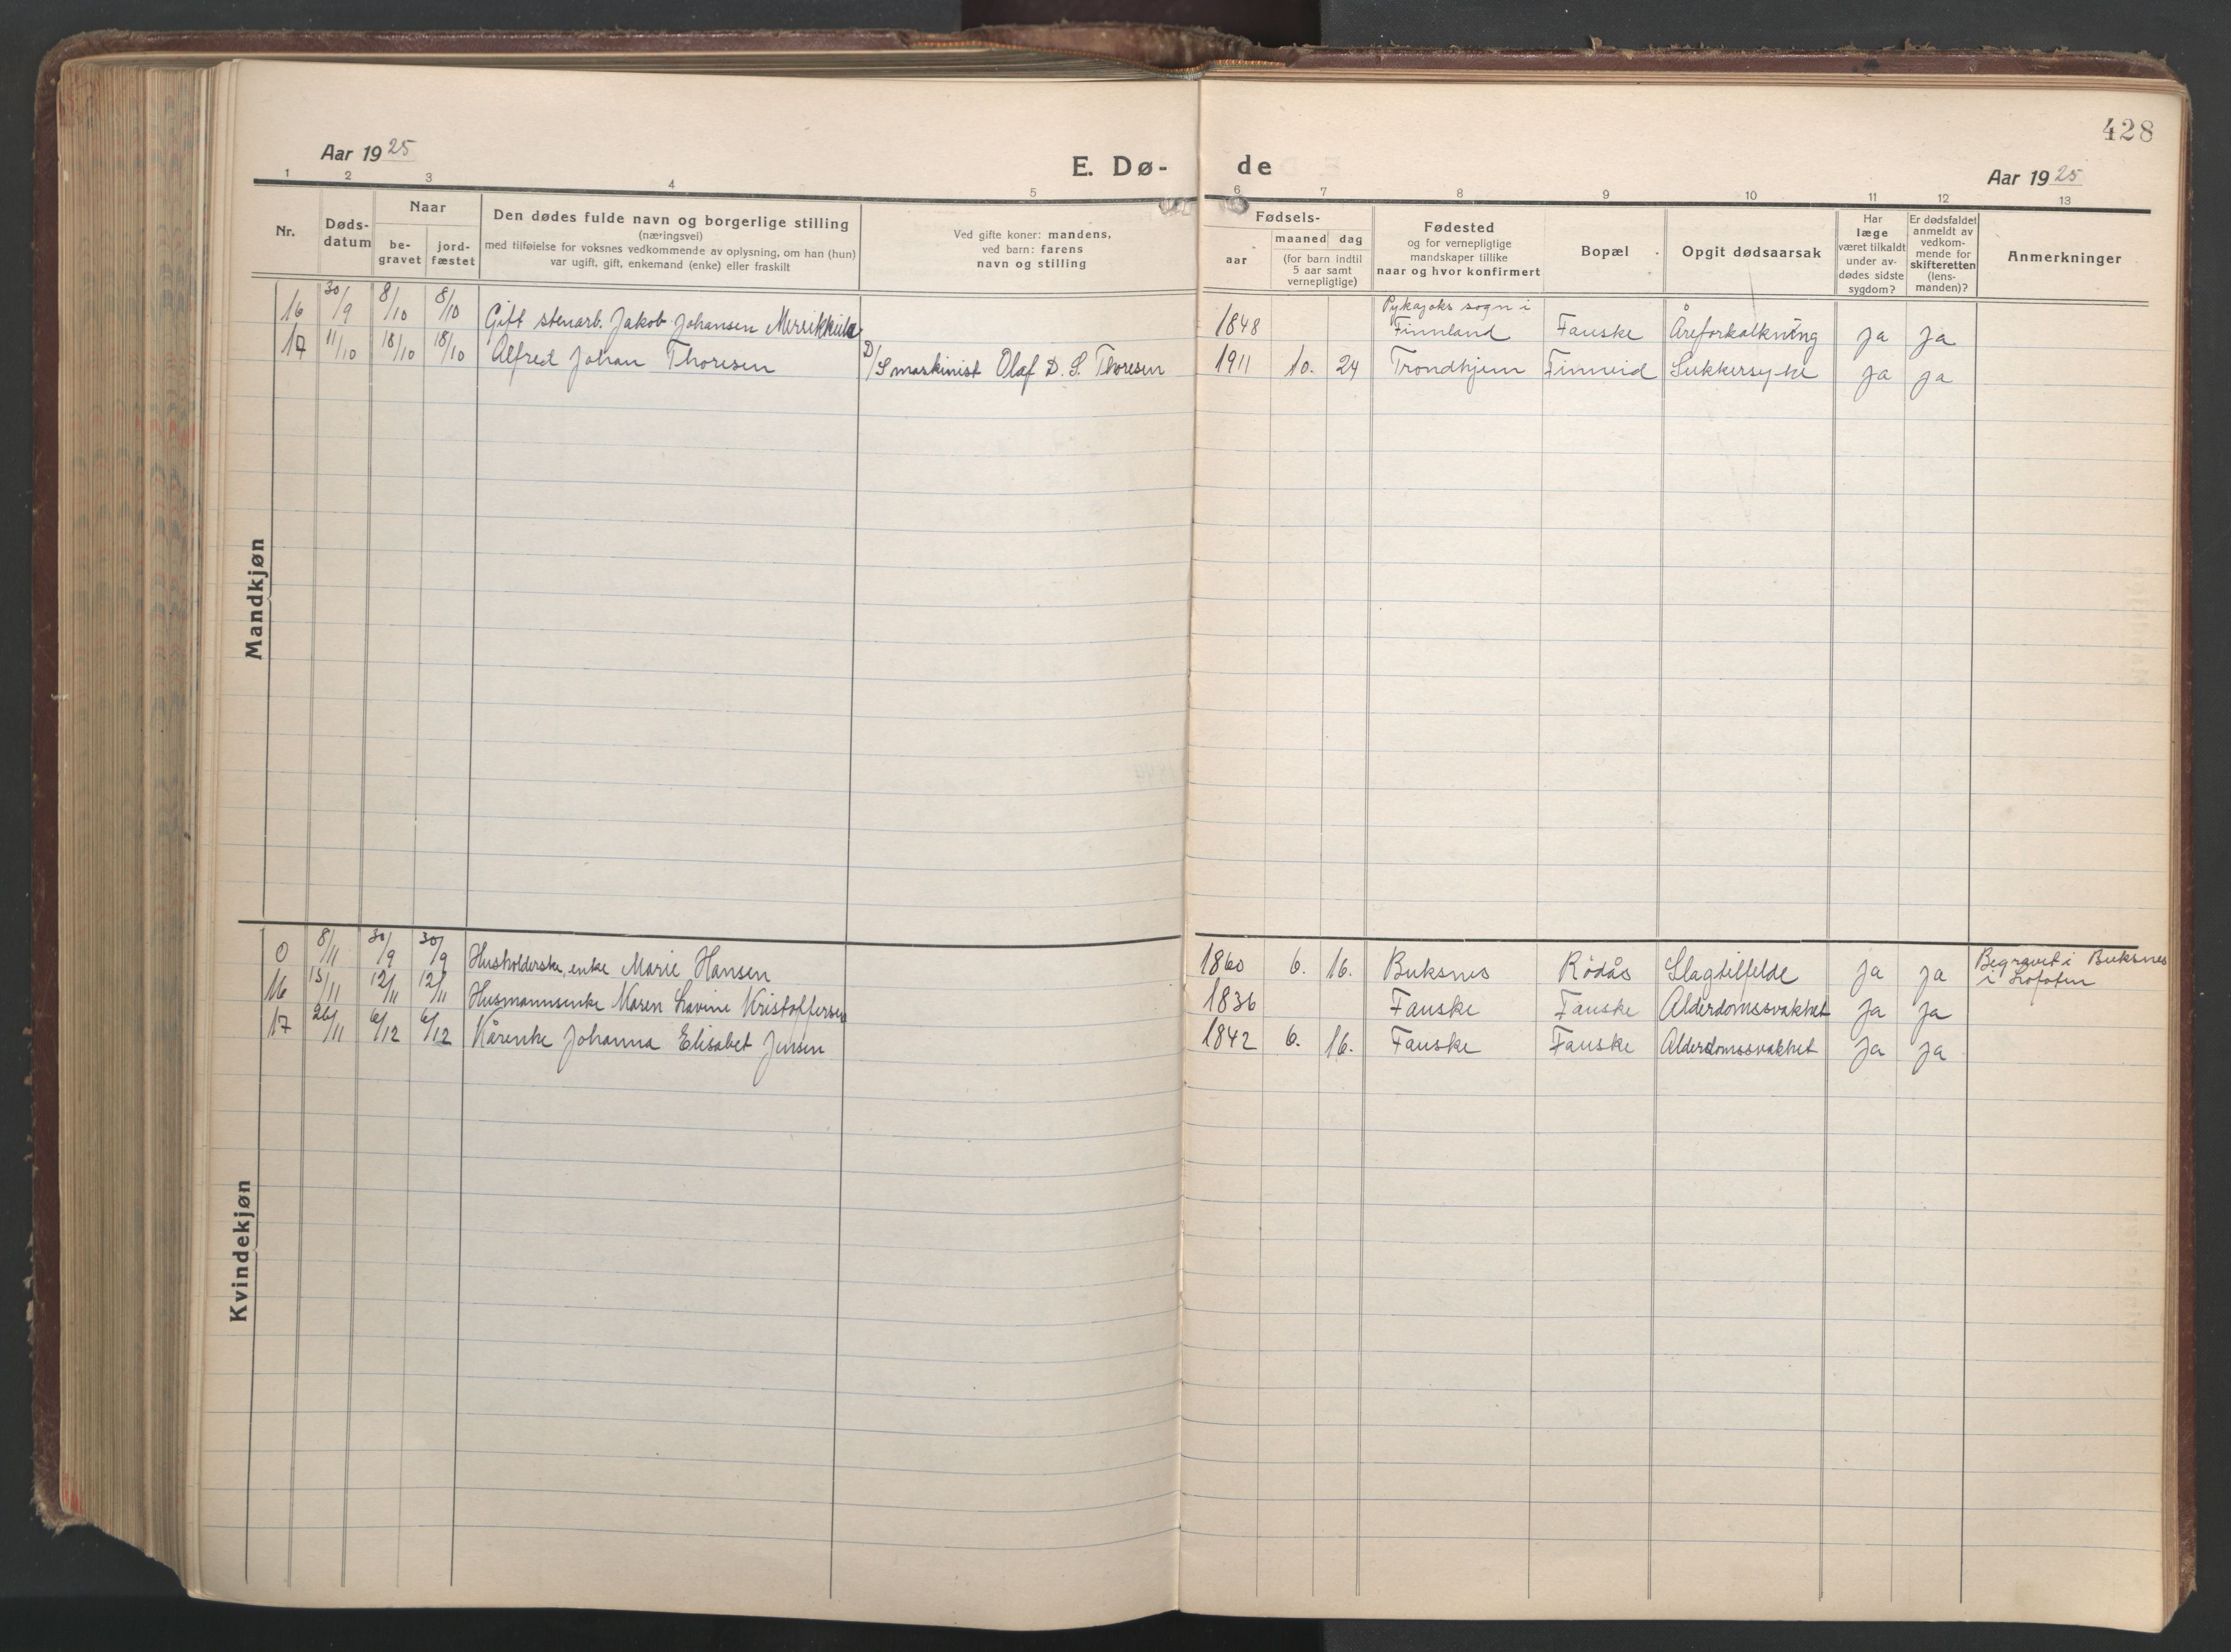 428
Aar 1925
E. Dø-
de
Aar 1925
1 2 3 4 5 6 7 8 9 10 11 12 13
Nr.
Døds-
datum
Naar
be-
gravet
jord-
fæstet
Den dødes fulde navn og borgerlige stilling
(næringsvei)
med tilføielse for voksnes vedkommende av oplysning, om han (hun)
var ugift, gift, enkemand (enke) eller fraskilt
Ved gifte koner: mandens,
ved barn: farens
navn og stilling
Fødsels-
aar
maaned dag
(for barn indtil
5 aar samt
vernepligtige)
Fødested
og for vernepligtige
mandskaper tillike
naar og hvor konfirmert
Bopæl
Opgit dødsaarsak
Har
læge
været tilkaldt
under av-
dødes sidste
sygdom?
Er dødsfaldet
anmeldt av
vedkom-
mende for
skifteretten
(lens-
manden)?
Anmerkninger
Mandkjøn
16 30/9 8/10 8/10 Gift stenarb. Jakob Johansen 1848 sogn i Finnland Fauske Åreforkalkning ja ja
17 11/10 18/10 18/10 Alfred Johan Thoresen D/S maskinist Olaf D. S. Thoresen 1911 10. 24 Trondhjem Finneid Sukkersyke ja ja
Kvindekjøn
0 8/11 30/9 30/9 Husholderske, enke Marie Hansen 1860 6. 16. Buksnes Rödås Slagtilfelde ja ja Begravet i Buksnes
i Lofoten
16 13/11 12/11 12/11 Husmannsenke Maren Lavine Kristoffersen 1836 Fauske Fauske Alderdomssvakhet ja ja
17 26/11 6/12 6/12 Kårenke Johanna Elisabet Jensen 1842 6. 16. Fauske Fauske Alderdomssvakhet ja ja